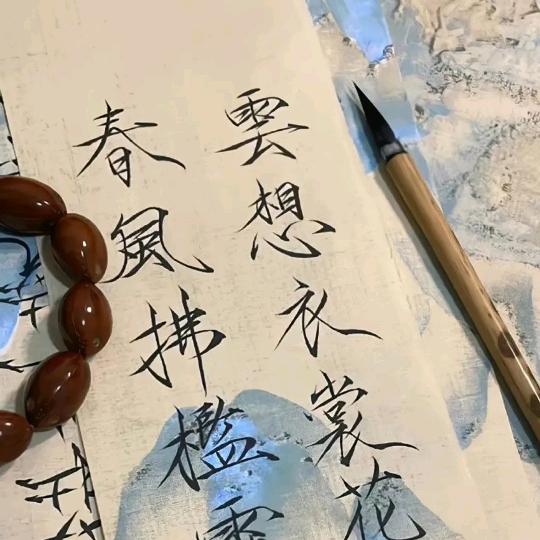 雲想衣裳花
春風拂檻露